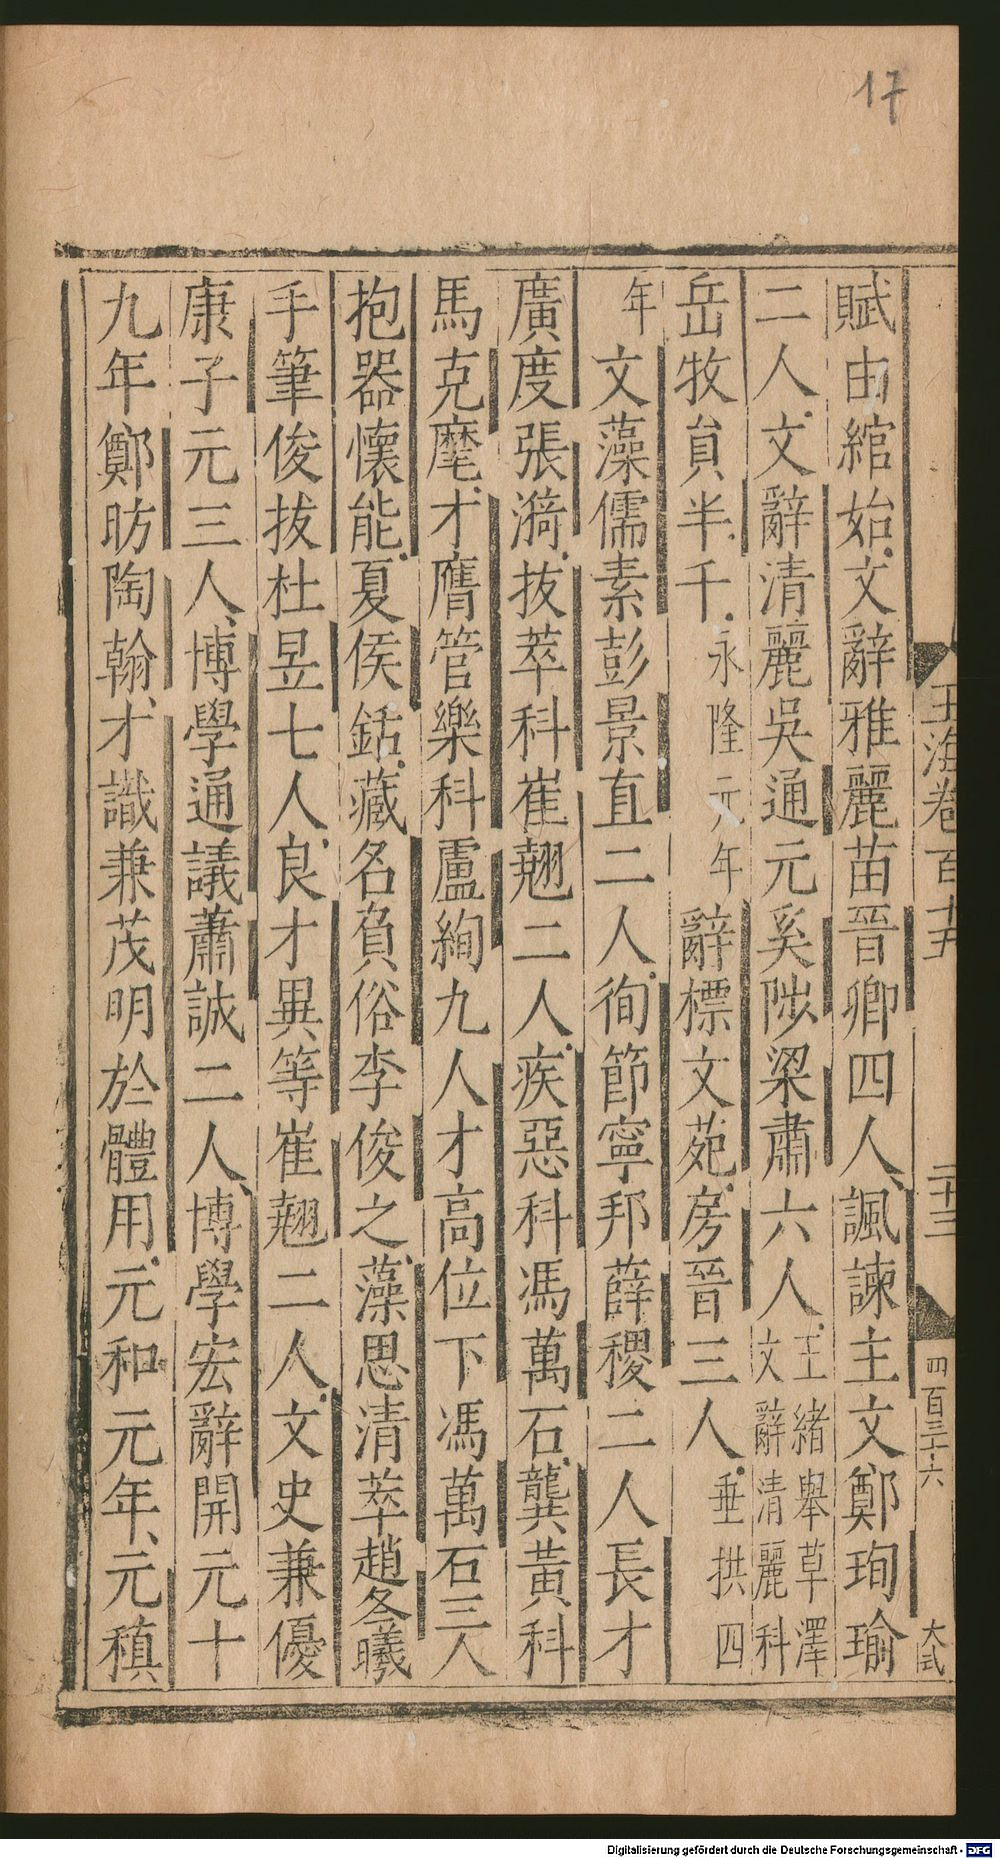 17
玉海卷百十五 二十三 四百三十六 大式
賦由綰始文辭雅麗苗晉卿四人諷諫主文鄭珣瑜
二人文辭清麗吳通元奚陟梁肅六人王緒舉草澤文辭清麗科
岳牧貟半千永隆元年辭標文苑房晉三人垂拱四
年文藻儒素彭景直二人徇節寧邦薛稷二人長才
廣度張漪拔萃科崔翹二人疾惡科馮萬石龔黃科
馬克麾才膺管樂科盧絢九人才高位下馮萬石三人
抱器懷能夏侯銛藏名負俗李俊之藻思清萃趙冬曦
手筆俊拔杜昱七人良才異等崔翹二人文史兼優
康子元三人博學通議蕭誠二人博學宏辭開元十
九年鄭昉陶翰才識兼茂明於體用元和元年元稹
Digitalisierung gefördert durch die Deutsche Forschungsgemeinschaft - DFG